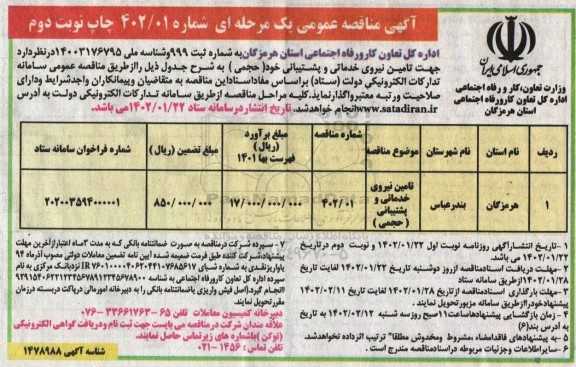 آگهی مناقصه عمومی یک مرحله ای شماره ۴۰۲/۰۱ چاپ نوبت دوم
جمهوری اسلامی ایران
وزارت تعاون،کار و رفاه اجتماعی
اداره کل تعاون کارورفاه اجتماعی
استان هرمزگان
اداره کل تعاون کارورفاه اجتماعی استان هرمزگان به شماره ثبت ۹۹۹وشناسه ملی ۱۴۰۰۳۱۷۶۷۹۵درنظردارد
جهت تامین نیروی خدماتی و پشتیبانی خود(حجمی ) به شرح جدول ذیل راازطریق مناقصه عمومی سامانه
تدارکات الکترونیکی دولت (ستاد) براساس مفاداسناداین مناقصه به متقاضیان وپیمانکاران واجدشرایط ودارای
صلاحیت ورتبه معتبرواگذارنماید.کلیه مراحل مناقصه ازطریق سامانه تدارکات الکترونیکی دولت به آدرس
www.satadiran.irانجام خواهدشد. تاریخ انتشاردرسامانه ستاد ۱۴۰۲/۰۱/۲۲می باشد.
ردیف
نام استان
نام شهرستان
موضوع مناقصه
شماره مناقصه
مبلغ برآورد (ریال) فهرست بها ۱۴۰۱
مبلغ تضمین (ریال)
شماره فراخوان سامانه ستاد
۱
هرمزگان
بندرعباس
تامین نیروی خدماتی و پشتیبانی (حجمی)
۴۰۲/۰۱
۱۷/۰۰۰/۰۰۰/۰۰۰
۸۵۰/۰۰۰/۰۰۰
۲۰۲۰۰۳۵۹۴۰۰۰۰۰۱
۱ –تاریخ انتشارآگهی روزنامه نوبت اول ۱۴۰۲/۰۱/۲۲ و نوبت دوم درتاریخ
۱۴۰۲/۰۱/۲۳ می باشد.
۲–مهلت دریافت اسنادمناقصه ازروز دوشنبه تاریخ ۱۴۰۲/۰۱/۲۲ لغایت تاریخ
۱۴۰۲/۰۱/۲۸ازطریق سامانه ستاد
۳– مهلت بارگذاری اسنادمناقصه ازتاریخ ۱۴۰۲/۰۱/۲۸ لغایت تاریخ ۱۴۰۲/۰۲/۱۱
پیشنهادخودراازطریق سامانه مزبورتحویل نمایند.
۴– زمان بازگشایی پیشنهادهاساعت۱۱صبح روزسه شنبه ۱۴۰۲/۰۲/۱۲ به
آدرس بند(۶)
۵–به پیشنهادهای فاقدامضاء ،مشروط ومخدوش مطلقا" ترتیب اثرداده نخواهدشد.
۶–سایراطلاعات وجزئیات مربوطه دراسنادمناقصه مندرج است .
۷– سپرده شرکت درمناقصه به صورت ضمانتنامه بانکی که به مدت ۳ماه اعتبارازآخرین مهلت
پیشنهادشرکت کننده طبق فرمت ضمیمه شده آیین نامه تضمین معاملات دولتی مصوب آذرماه ۹۴
سپرده اداره کل تعاون کارورفاه اجتماعی به شناسه
الزامی گیرد.(اصل فیش واریزی یاضمانتنامه بانکی را به دبیرخانه امورمالی دریافت دربسته درزمان
مقررتحویل نمایند.
دبیرخانه کمیسیون معاملات تلفن ۶۵ –۳۳۶۶۱۷۶۳–۰۷۶
علاقه مندان شرکت درمناقصه می بایست جهت ثبت نام ودریافت گواهی الکترونیکی
(توکن )باشماره های زیرتماس حاصل نمایند.
تلفن تماس : ۱۴۵۶–۰۲۱
شناسه آگهی ۱۴۷۸۹۸۸